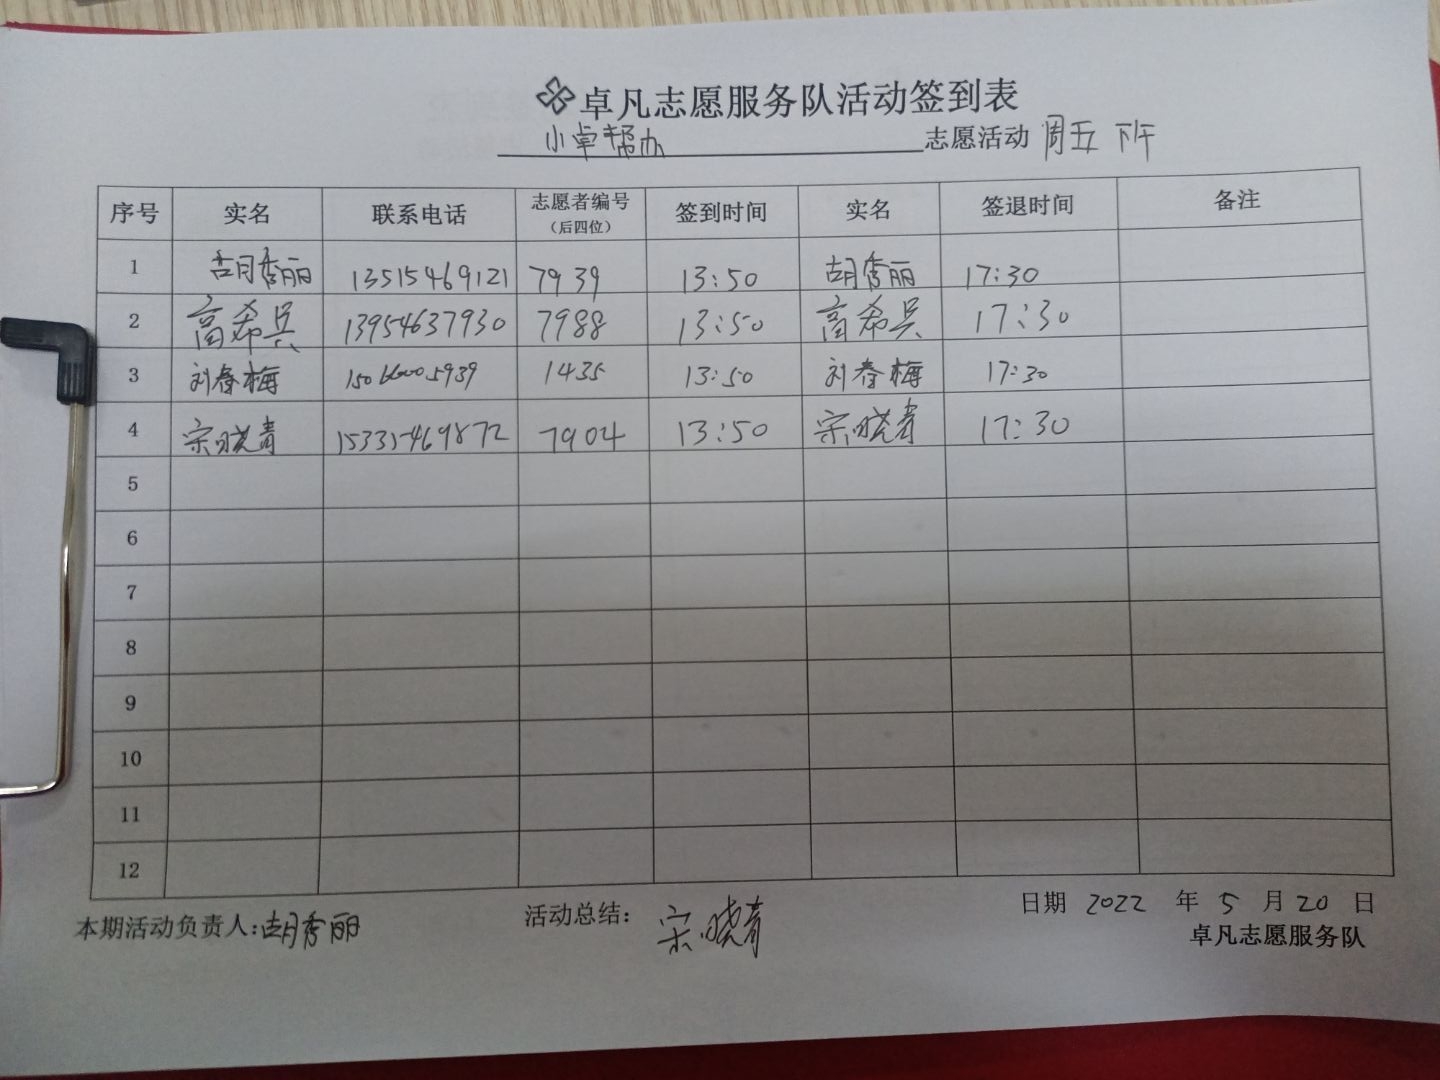 卓凡志愿服务队活动签到表
小卓帮办 志愿活动 周五 下午
序号 实名 联系电话 志愿者编号（后四位） 签到时间 实名 签退时间 备注
1 胡秀丽 13515469121 7939 13:50 胡秀丽 17:30
2 高希兵 13954637930 7988 13:50 高希兵 17:30
3 刘春梅 1435 13:50 刘春梅 17:30
4 宋晓青 15335469872 7904 13:50 宋晓青 17:30
5
6
7
8
9
10
11
12
本期活动负责人:胡秀丽 活动总结: 宋晓青 日期 2022 年 5 月 20 日
卓凡志愿服务队